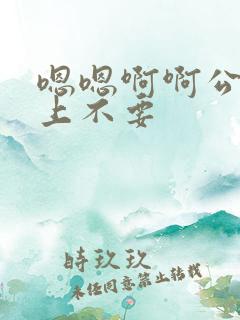 嗯嗯啊啊公
上不要
時玖玖
未经同意禁止转载